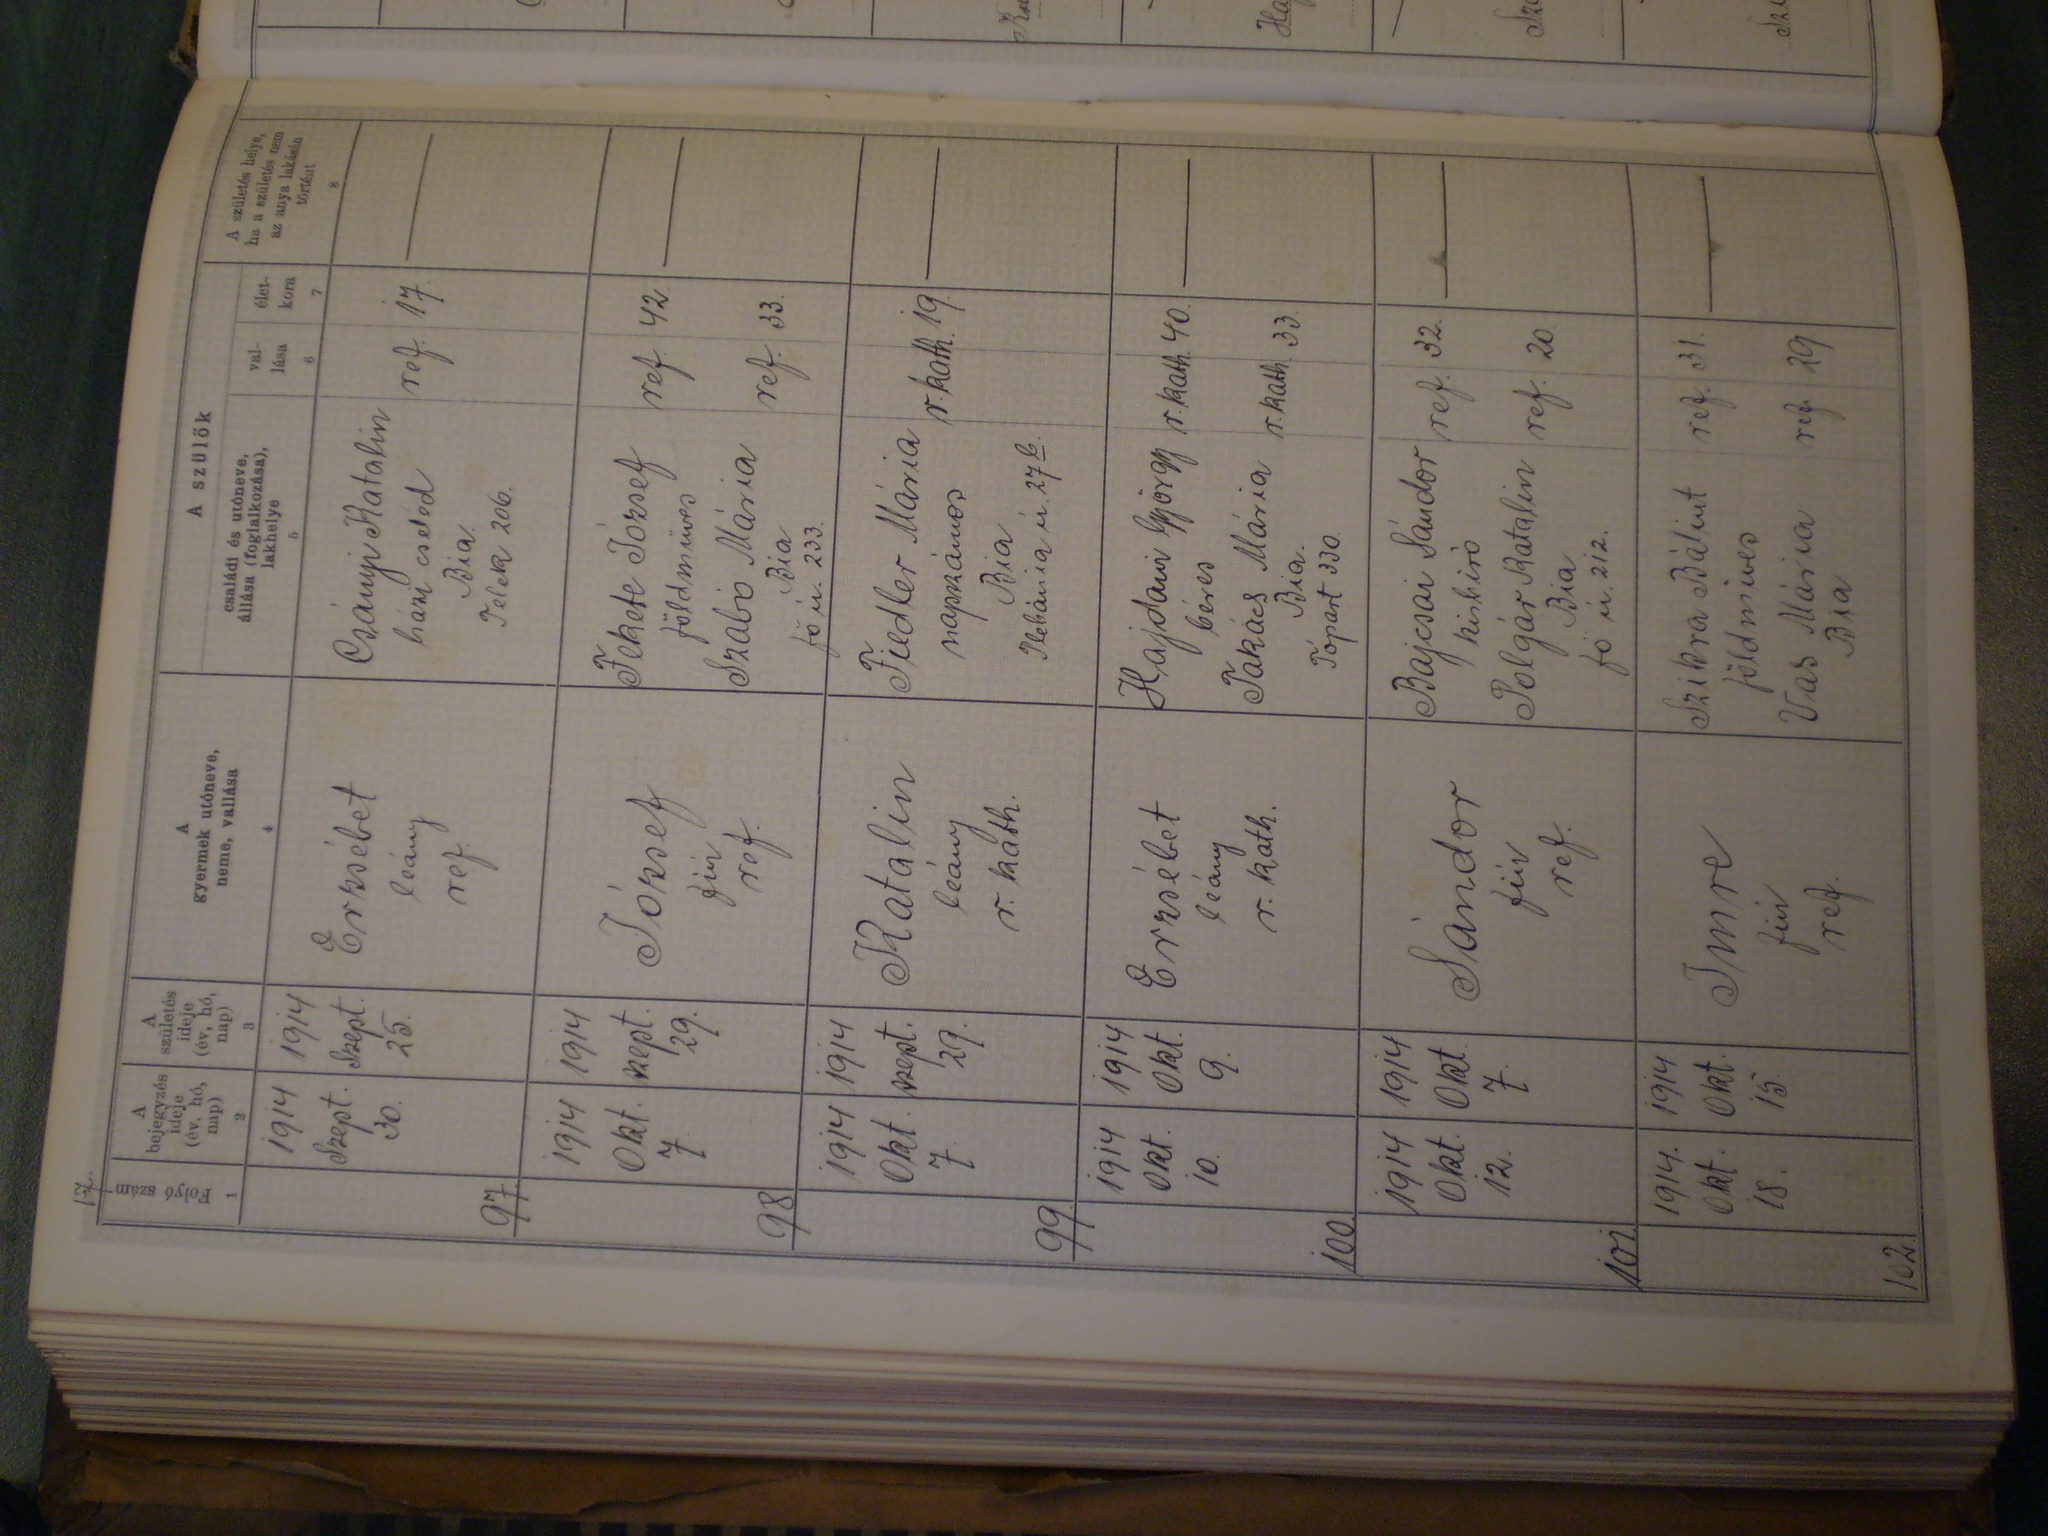 17.
Folyó szám
A bejegyzés ideje (év, hó, nap)
A születés ideje (év, hó, nap)
A gyermek utóneve, neme, vallása
A szülők
családi és utóneve, állása (foglalkozása), lakhelye
val-lása
élet-kora
A születés helye, ha a születés nem az anya lakásán történt
1 2 3 4 5 6 7 8
97
1914 Szept. 30.
1914 Szept. 25.
Erzsébet
leány
ref.
Csányi Katalin ref. 17.
házi cseléd
Bia.
Telek 206.
98
1914 Okt. 7
1914 szept. 29.
József
fiú
ref.
Fekete József ref 42.
földműves
Szabó Mária ref. 33.
Bia
fő u. 233.
99.
1914 Okt. 7
1914 szept. 29.
Katalin
leány
r. kath.
Fiedler Mária r. kath. 19.
napszámos
Bia
Plebánia u. 27 b.
100.
1914 Okt. 10.
1914 Okt. 9.
Erzsébet
leány
r. kath.
Hajdani György r. kath. 40.
béres
Takács Mária r. kath. 33.
Bia.
Tópart 330.
101.
1914 Okt. 12.
1914 Okt. 7.
Sándor
fiú
ref.
Bajcsai Sándor ref. 32.
kisbiró
Polgár Katalin ref. 20.
Bia
fő u. 212.
102.
1914. Okt. 18.
1914 Okt. 15
Imre
fiú
ref.
Szikra Bálint ref. 31.
földműves
Vas Mária ref. 29
Bia